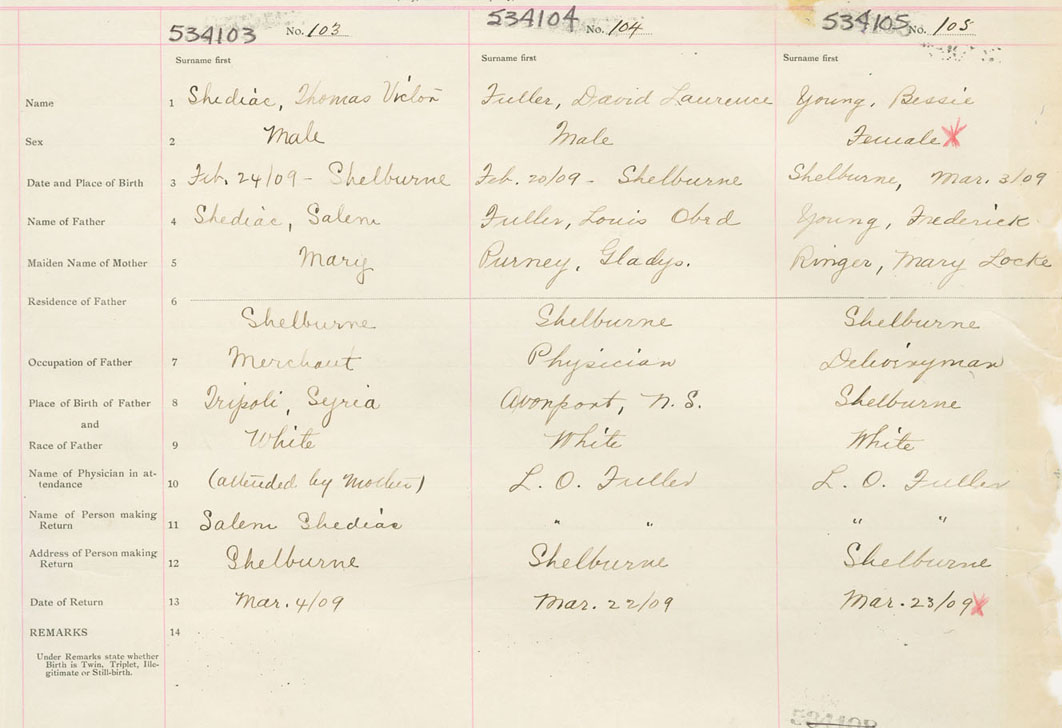 534103 No. 103 534104 No. 104 534105 No. 105
Surname first Surname first Surname first
Name 1 Shediac, Thomas Victor Fuller, David Laurence Young, Bessie
Sex 2 Male Male Female
Date and Place of Birth 3 Feb. 24/09 - Shelburne Feb. 20/09 - Shelburne Shelburne, Mar. 3/09
Name of Father 4 Shediac, Salem Fuller, Louis Obed Young, Frederick
Maiden Name of Mother 5 Mary Purney, Gladys. Ringer, Mary Locke
Residence of Father 6
Shelburne Shelburne Shelburne
Occupation of Father 7 Merchant Physician Deliveryman
Place of Birth of Father 8 Tripoli, Syria Avonport, N.S. Shelburne
and
Race of Father 9 White White White
Name of Physician in at-
tendance 10 (attended by Mother) L. O. Fuller L. O. Fuller
Name of Person making
Return 11 Salem Shediac " " " "
Address of Person making
Return 12 Shelburne Shelburne Shelburne
Date of Return 13 Mar. 4/09 Mar. 22/09 Mar. 23/09
REMARKS 14
Under Remarks state whether
Birth is Twin, Triplet, Ille-
gitimate or Still-birth.